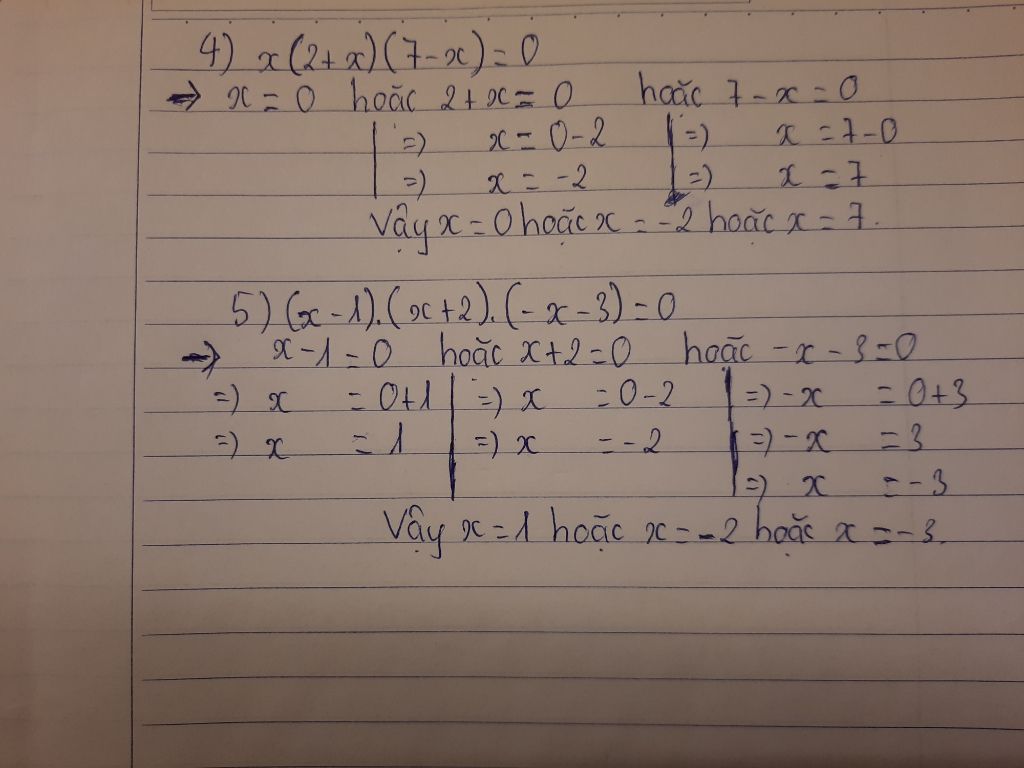 4) x(2+x)(7-x)=0
→ x=0 hoặc 2+x=0 hoặc 7-x=0
=) x=0-2 | =) x=7-0
=) x=-2 | =) x=7
Vậy x=0 hoặc x=-2 hoặc x=7.
5) (x-1).(x+2).(-x-3)=0
→ x-1=0 hoặc x+2=0 hoặc -x-3=0
=) x =0+1 | =) x =0-2 | =) -x =0+3
=) x =1 | =) x =-2 | =) -x =3
=) x =-3
Vậy x=1 hoặc x=-2 hoặc x=-3.